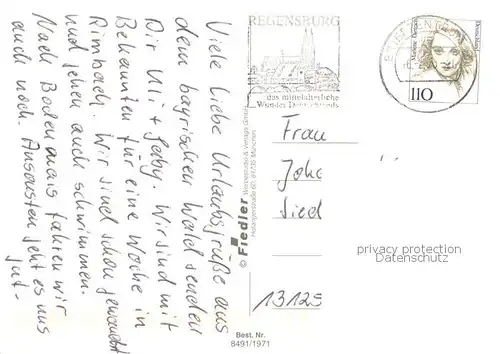 Viele liebe Urlaubsgrüße aus
dem bayrischen Wald senden
Dir Uli + Gaby. Wir sind mit
Bekannten für eine Woche in
Rimbach. Wir sind schon gewandert
und gehen auch schwimmen.
Nach Bodenmais fahren wir
auch noch. Ansonsten geht es uns
gut-
REGENSBURG
das mittelalterliche
Wunder Deutschlands
Deutschland
Marlene Dietrich
110
© Fiedler
Werbestudio & Verlags GmbH
81735 München
Frau
Joha
Siedl
13125
privacy protection
Datenschutz
Best. Nr.
8491/1971